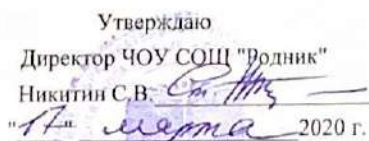 Утверждаю
Директор ЧОУ СОШ "Родник"
Никитин С.В.
"17" марта 2020 г.